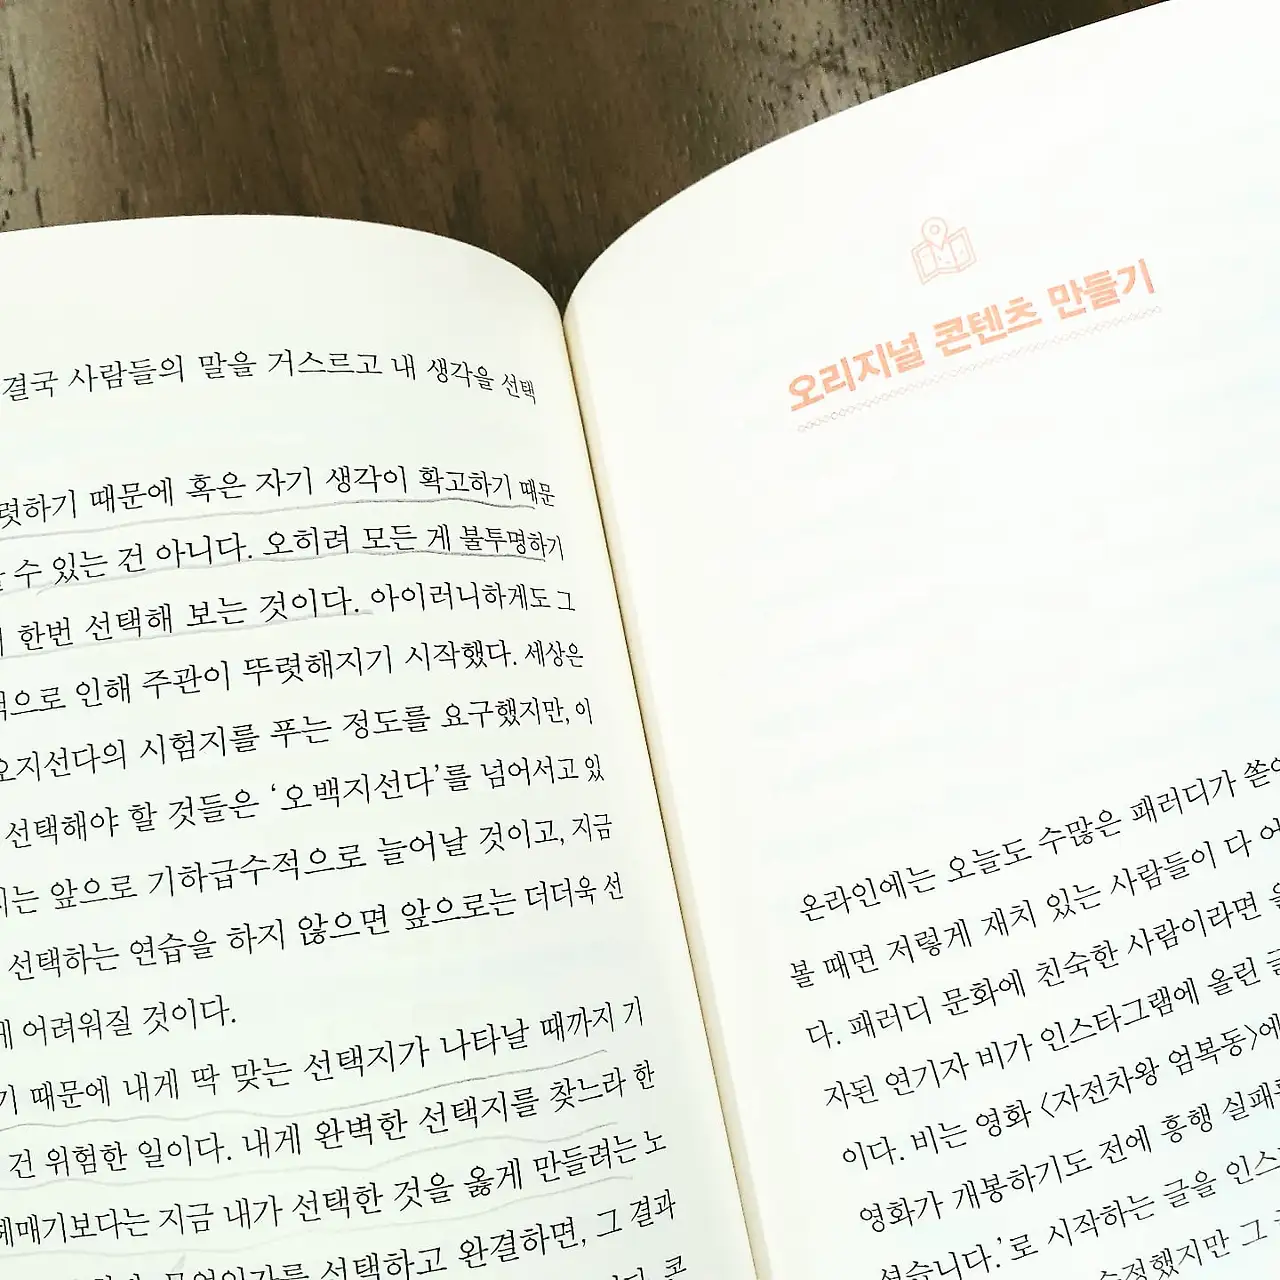 결국 사람들의 말을 거스르고 내 생각을 선택
렷하기 때문에 혹은 자기 생각이 확고하기 때문
수 있는 건 아니다. 오히려 모든 게 불투명하기
한번 선택해 보는 것이다. 아이러니하게도 그
으로 인해 주관이 뚜렷해지기 시작했다. 세상은
오지선다의 시험지를 푸는 정도를 요구했지만, 이
선택해야 할 것들은 ‘오백지선다’를 넘어서고 있
는 앞으로 기하급수적으로 늘어날 것이고, 지금
선택하는 연습을 하지 않으면 앞으로는 더더욱 선
어려워질 것이다.
기 때문에 내게 딱 맞는 선택지가 나타날 때까지 기
건 위험한 일이다. 내게 완벽한 선택지를 찾느라 한
헤매기보다는 지금 내가 선택한 것을 옳게 만들려는 노
무엇인가를 선택하고 완결하면, 그 결과
콘
오리지널 콘텐츠 만들기
온라인에는 오늘도 수많은 패러디가 쏟아
볼 때면 저렇게 재치 있는 사람들이 다 어
다. 패러디 문화에 친숙한 사람이라면
자된 연기자 비가 인스타그램에 올린 글
이다. 비는 영화 〈자전차왕 엄복동〉에
영화가 개봉하기도 전에 흥행 실패
셨습니다.’로 시작하는 글을 인스
수정했지만 그